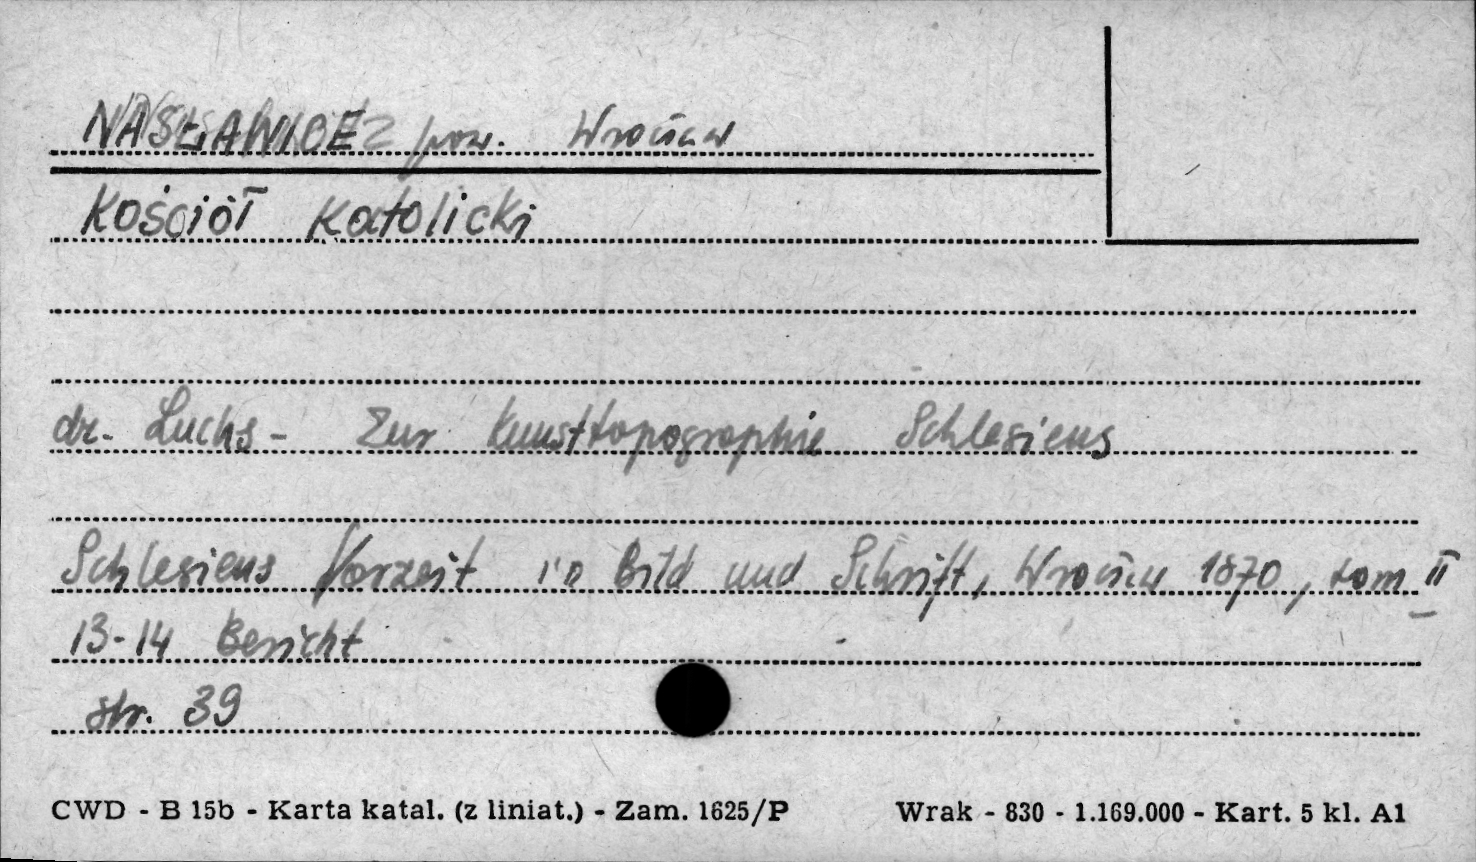 NASŁAWICE pow. Wrocław
Kościół Katolicki
dr. Luchs - Zur Kunsttopographie Schlesiens
Schlesiens Vorzeit in Bild und Schrift, Wrocław 1870, tom II
13-14 Bericht
str. 39
CWD - B 15b - Karta katal. (z liniat.) - Zam. 1625/P Wrak - 830 - 1.169.000 - Kart. 5 kl. A1